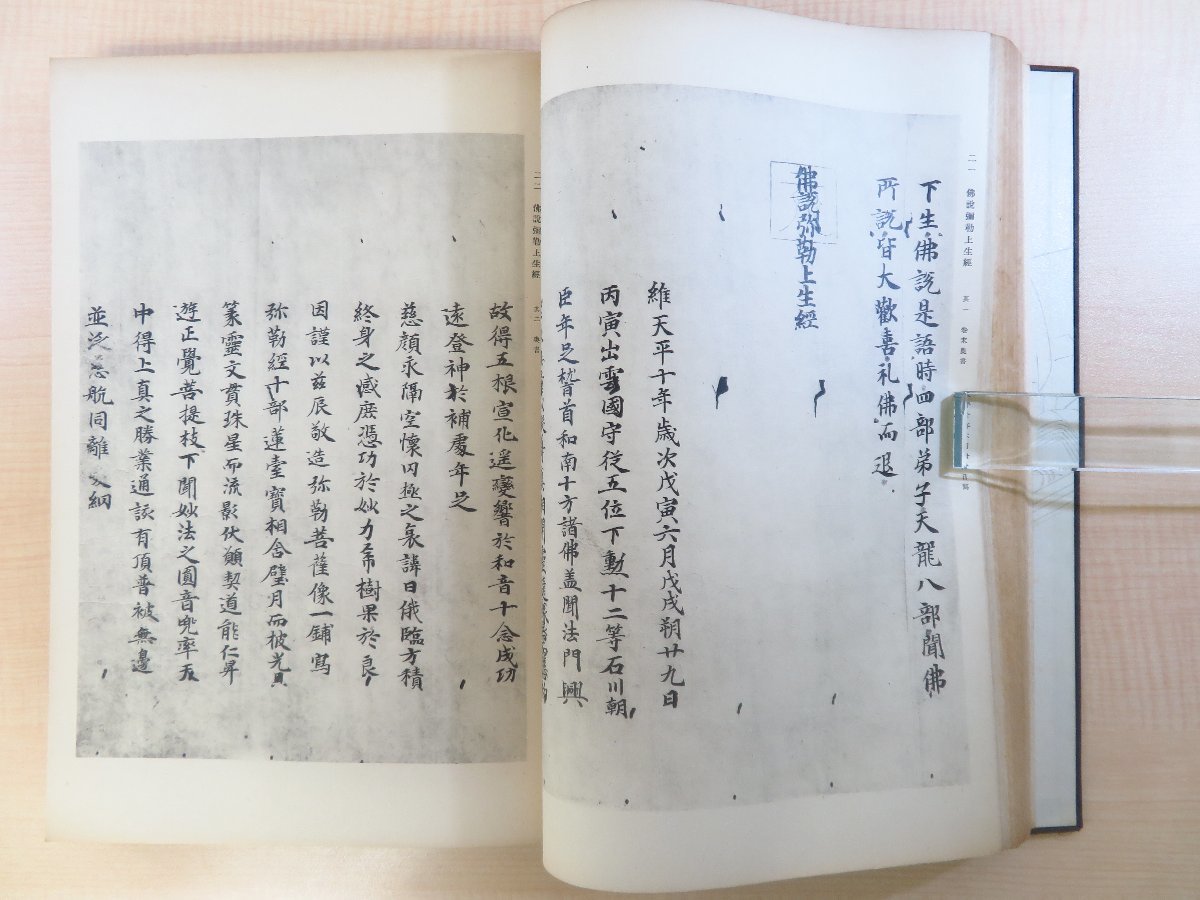 二一 佛說彌勒上生經 其一 卷末奧書
下生佛說是語時四部弟子天龍八部聞佛
所說皆大歡喜礼佛而退
佛說弥勒上生經
維天平十年歲次戊寅六月戊戌朔廿九日
丙寅出雲國守從五位下勳十二等石川朝
臣年足稽首和南十方諸佛盖聞法門興
二二 佛說彌勒上生經 其二 奧書
故得五根宣化遥變響於和音十念成功
遠登神於補處年足
慈顔永隔空懷罔極之哀諱日俄臨方積
終身之感庶憑功於妙力希樹果於良
因謹以兹辰敬造弥勒菩薩像一鋪寫
弥勒經十部蓮臺寶相含璧月而披光貝
篆靈文貫珠星而流影伏願契道能仁昇
遊正覺菩提枝下聞妙法之圓音兜率天
中得上真之勝業通該有頂普被無邊
並泛慈航同離 網